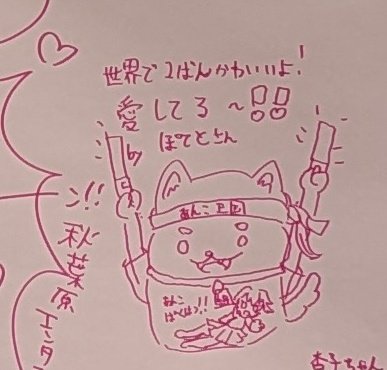 世界で2ばんかわいいよ!
愛してる〜!!
ぽてとさん
あんこ
あんこ
ン!!
秋葉原
エンタ
杏子ちゃん